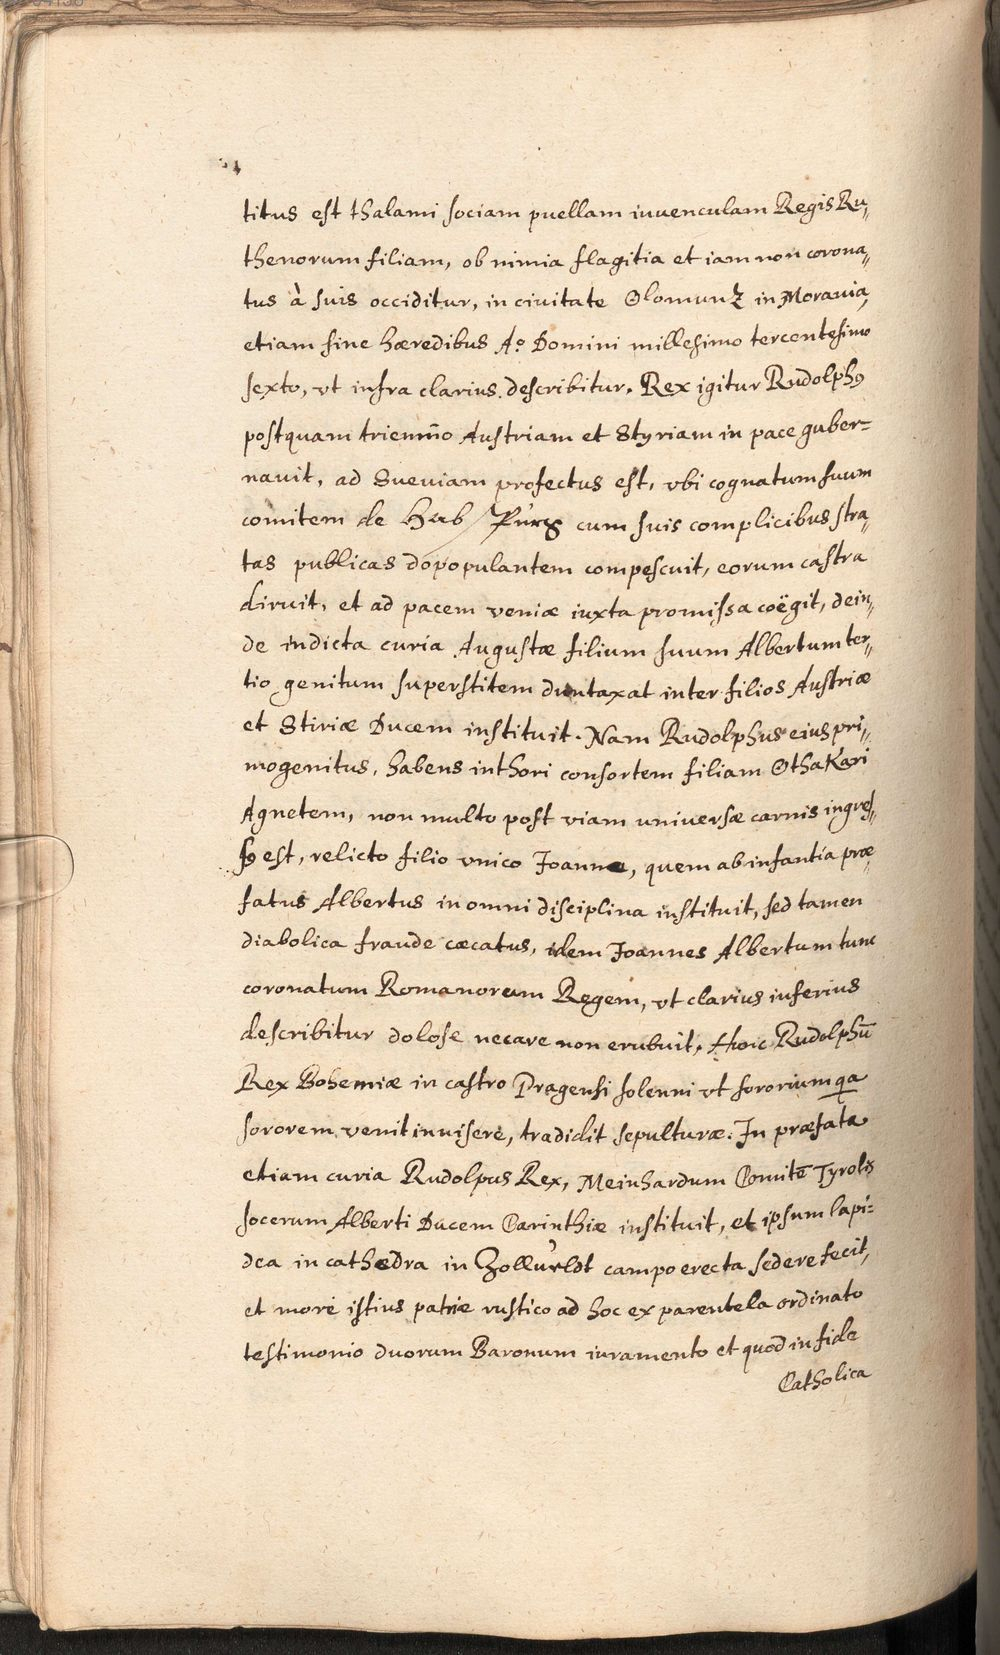 titus est thalami sociam puellam iuuenculam Regis Ru„
thenorum filiam, ob nimia flagitia et iam non corona„
tus à suis occiditur, in ciuitate Olomunz in Morauia,
etiam sine hæredibus Aº Domini millesimo tercentesimo
sexto, vt infra clarius describitur. Rex igitur Rudolphꝰ
postquam trienn̄o Austriam et Styriam in pace guber=
nauit, ad Sueuiam profectus est, vbi cognatum suum
comitem de Hab Purg cum suis complicibus stra„
tas publicas dopopulantem compescuit, eorum castra
diruit, et ad pacem veniæ iuxta promissa coëgit, dein„
de indicta curia Augustæ filium suum Albertum ter„
tio genitum superstitem duntaxat inter filios Austriæ
et Stiriæ Ducem instituit. Nam Rudolphus eius pri„
mogenitus, habens in thori consortem filiam OthaKari
Agnetem, non multo post viam universæ carnis ingres„
sꝰ est, relicto filio vnico Joanne, quem ab infantia præ„
fatus Albertus in omni disciplina instituit, sed tamen
diabolica fraude cæcatus, idem Joannes Albertum tunc
coronatum Romanorum Regem, vt clarius inferius
describitur dolose necare non erubuit. Hunc Rudolphū
Rex Bohemiæ in castro Pragensi solenni vt sororium qa
sororem venit inuisere, tradidit sepulturæ. In præfata
etiam curia Rudolpus Rex, Meinhardum Comitē Tyrolis
socerum Alberti Ducem Carinthiæ instituit, et ipsum lapi=
dea in cathedra in Zollueldt campo erecta sedere fecit,
et more istius patriæ rustico ad hoc ex parentela ordinato
testimonio duorum Baronum iuramento et quod in fide
Catholica